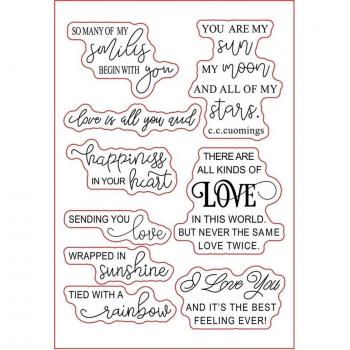 SO MANY OF MY
smilis
BEGIN WITH you
love is all you and
happiness
IN YOUR heart
SENDING YOU
love
WRAPPED IN
sunshine
TIED WITH A
rainbow
YOU ARE MY
sun
MY moon
AND ALL OF MY
stars.
c.c.cuomings
THERE ARE
ALL KINDS OF
LOVE
IN THIS WORLD.
BUT NEVER THE SAME
LOVE TWICE.
I Love You
AND IT'S THE BEST
FEELING EVER!